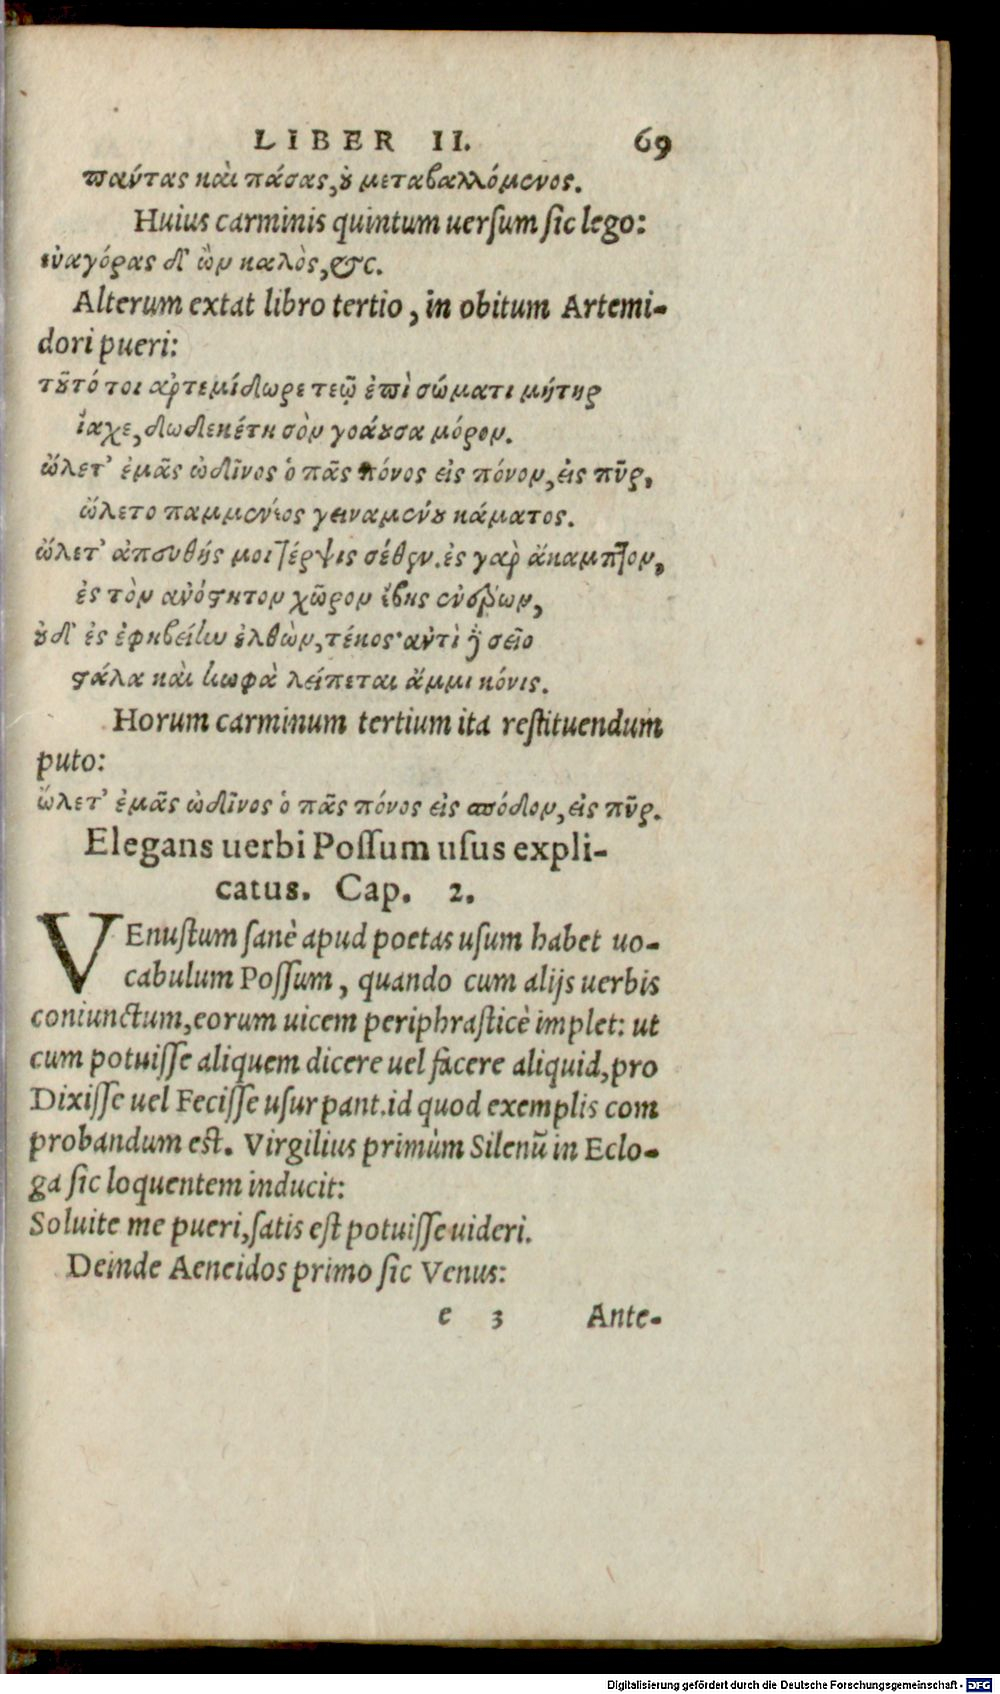 LIBER II. 69
πάντας καὶ πάσας, ȣ μεταβαλλόμενος.
Huius carminis quintum uerſum ſic lego:
εὐαγόρας δ' ὢν καλὸς, &c.
Alterum extat libro tertio, in obitum Artemi-
dori pueri:
τȣ͂τό τοι ἀρτεμίδωρε τεῷ ἐπὶ σώματι μήτηρ
ἴαχε, δωδεκέτη σὸν γοάȣσα μόρον.
ὤλετ' ἐμᾶς ὠδῖνος ὁ πᾶς πόνος εἰς πόνον, εἰς πῦρ,
ὤλετο παμμένιος γειναμένȣ κάματος.
ὤλετ' ἀπευθής μοι τέρψις σέθεν. ἐς γὰρ ἄκαμπτον,
ἐς τὸν ἀνόστητον χῶρον ἔβης ἐνέρων,
ȣδ' ἐς ἐφηβείην ἐλθὼν, τέκος· ἀντὶ δὲ σεῖο
στάλα καὶ κωφὰ λείπεται ἄμμι κόνις.
Horum carminum tertium ita reſtituendum
puto:
ὤλετ' ἐμᾶς ὠδῖνος ὁ πᾶς πόνος εἰς σπόδον, εἰς πῦρ.
Elegans uerbi Poſſum uſus expli-
catus. Cap. 2.
VEnuſtum ſanè apud poetas uſum habet uo-
cabulum Poſſum, quando cum alijs uerbis
coniunctum, eorum uicem periphraſticè implet: ut
cum potuiſſe aliquem dicere uel facere aliquid, pro
Dixiſſe uel Feciſſe uſurpant. id quod exemplis com
probandum eſt. Virgilius primùm Silenū in Eclo-
ga ſic loquentem inducit:
Soluite me pueri, ſatis eſt potuiſſe uideri.
Deinde Aeneidos primo ſic Venus:
e 3 Ante-
Digitalisierung gefördert durch die Deutsche Forschungsgemeinschaft - DFG